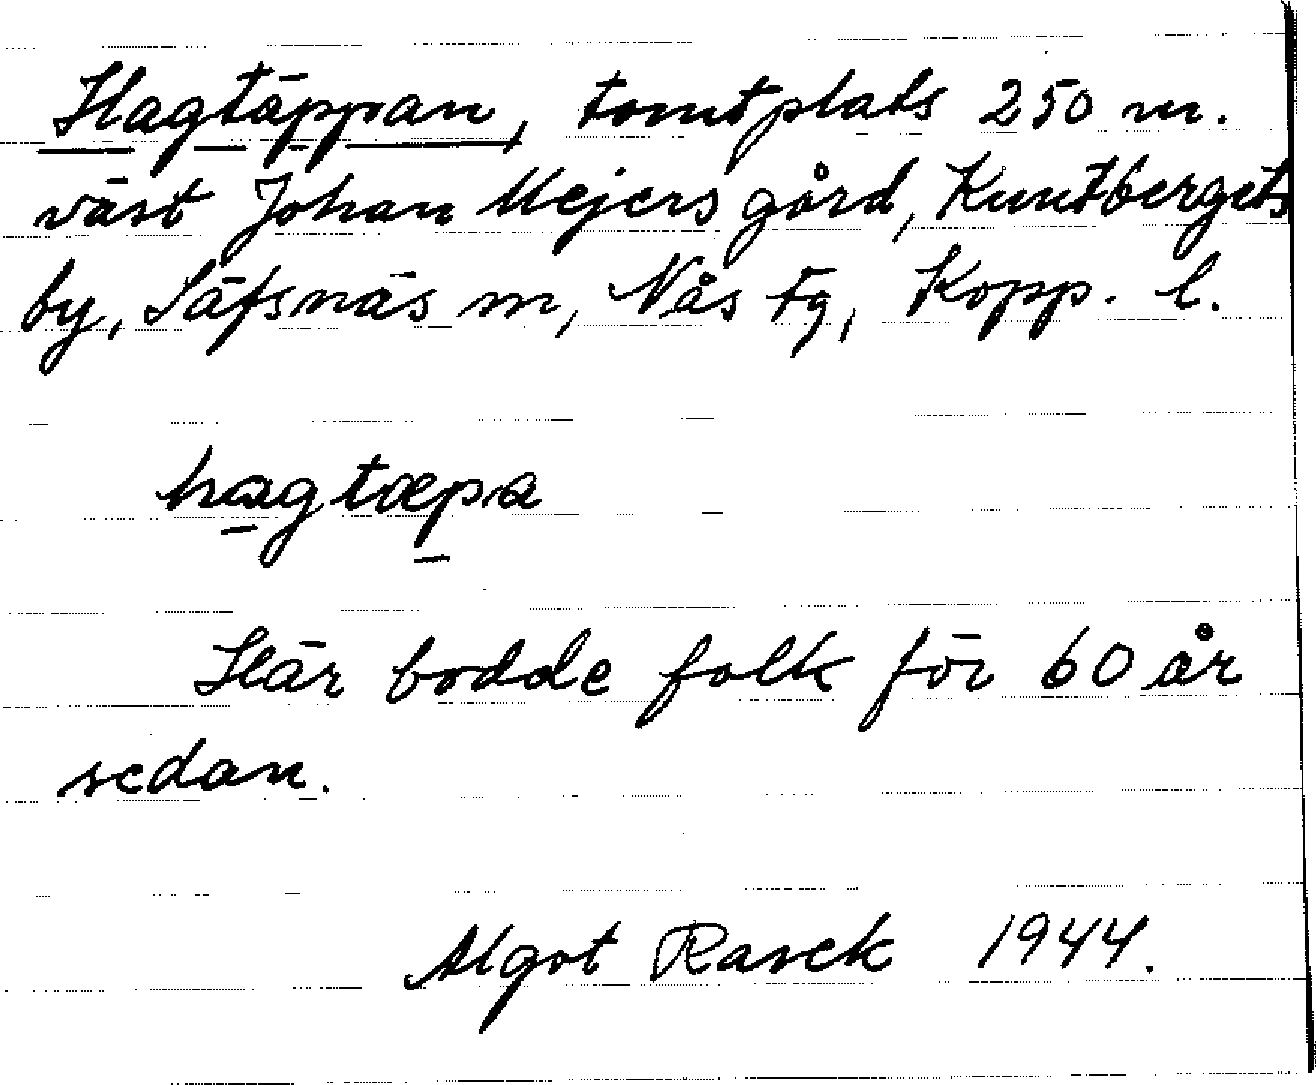 Hagtäppan, tomtplats 250 m.
väst Johan Mejers gård, Kuntbergets
by, Säfsnäs m, Nås Fg, Kopp. l.
hagtæpa
Här bodde folk för 60 år
sedan.
Algot Rasek 1944.